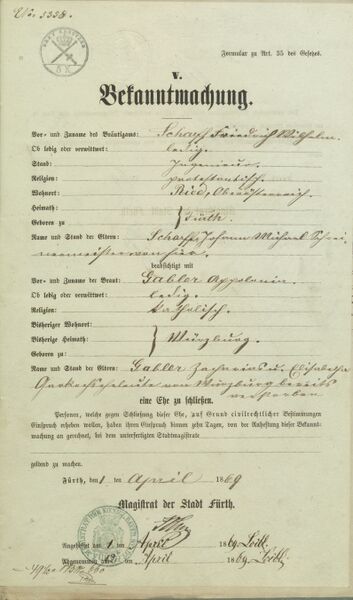 No. 3338.
5 X
Formular zu Art. 35 des Gesetzes.
V.
Bekanntmachung.
Vor- und Zuname des Bräutigams: Scharff Friedrich Wilhelm.
Ob ledig oder verwittwet: ledig.
Stand: Ingenieur.
Religion: protestantisch.
Wohnort: Ried, Oberösterreich.
Heimath:
Geboren zu
} Fürth.
Name und Stand der Eltern: Scharff, Johann Michael Schrei-
nermeister von hier.
beabsichtigt mit
Vor- und Zuname der Braut: Gabler Appolonia.
Ob ledig oder verwittwet: ledig.
Religion: katholisch.
Bisheriger Wohnort:
Bisherige Heimath:
Geboren zu:
} Würzburg.
Name und Stand der Eltern: Gabler Zacharias u. Elisabetha
von Würzburg bereits
verstorben
eine Ehe zu schließen.
Personen, welche gegen Schließung dieser Ehe, auf Grund civilrechtlicher Bestimmungen
Einspruch erheben wollen, haben ihren Einspruch binnen zehn Tagen, von der Anheftung dieser Bekannt-
machung an gerechnet, bei dem unterfertigten Stadtmagistrate
geltend zu machen.
Fürth, den 1 April 1869
Magistrat der Stadt Fürth.
Angeheftet den 1 April 1869.
Abgenommen den 12 April 1869.